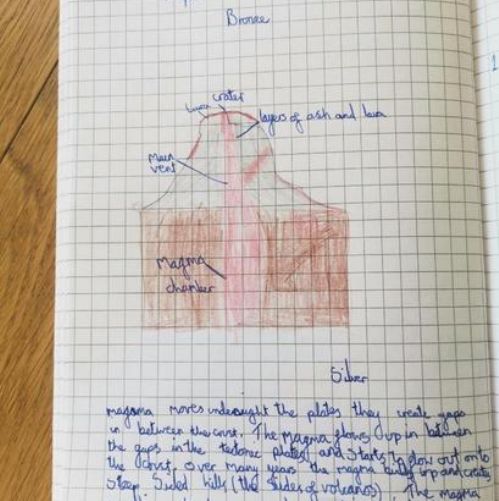 Bronze
crater
lava
layers of ash and lava
Main
vent
Magma
chamber
Silver
magma moves underneught the plates they create gaps
in between the crust. The magma flows up in between
the gaps in the tectonic plates and starts to flow out onto
the crust. over many years the magma builds up and creates
steep sided hills (the sides of volcanos). The magma